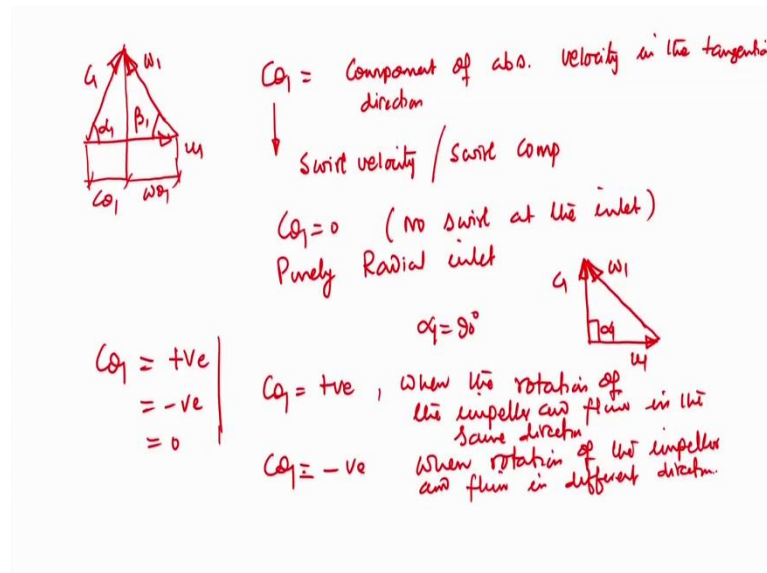 C₁ w₁
α₁ β₁
u₁
Cθ₁ wθ₁
Cθ₁ = Component of abs. velocity in the tangentia
direction
Swirl velocity / swirl comp
Cθ₁ = 0 (no swirl at the inlet)
Purely Radial inlet
C₁ w₁
α₁
u₁
α₁ = 90°
Cθ₁ = +ve
= -ve
= 0
Cθ₁ = +ve , when the rotation of
the impeller and flow in the
same directn
Cθ₁ = - ve when rotation of the impeller
and flow in different directn.